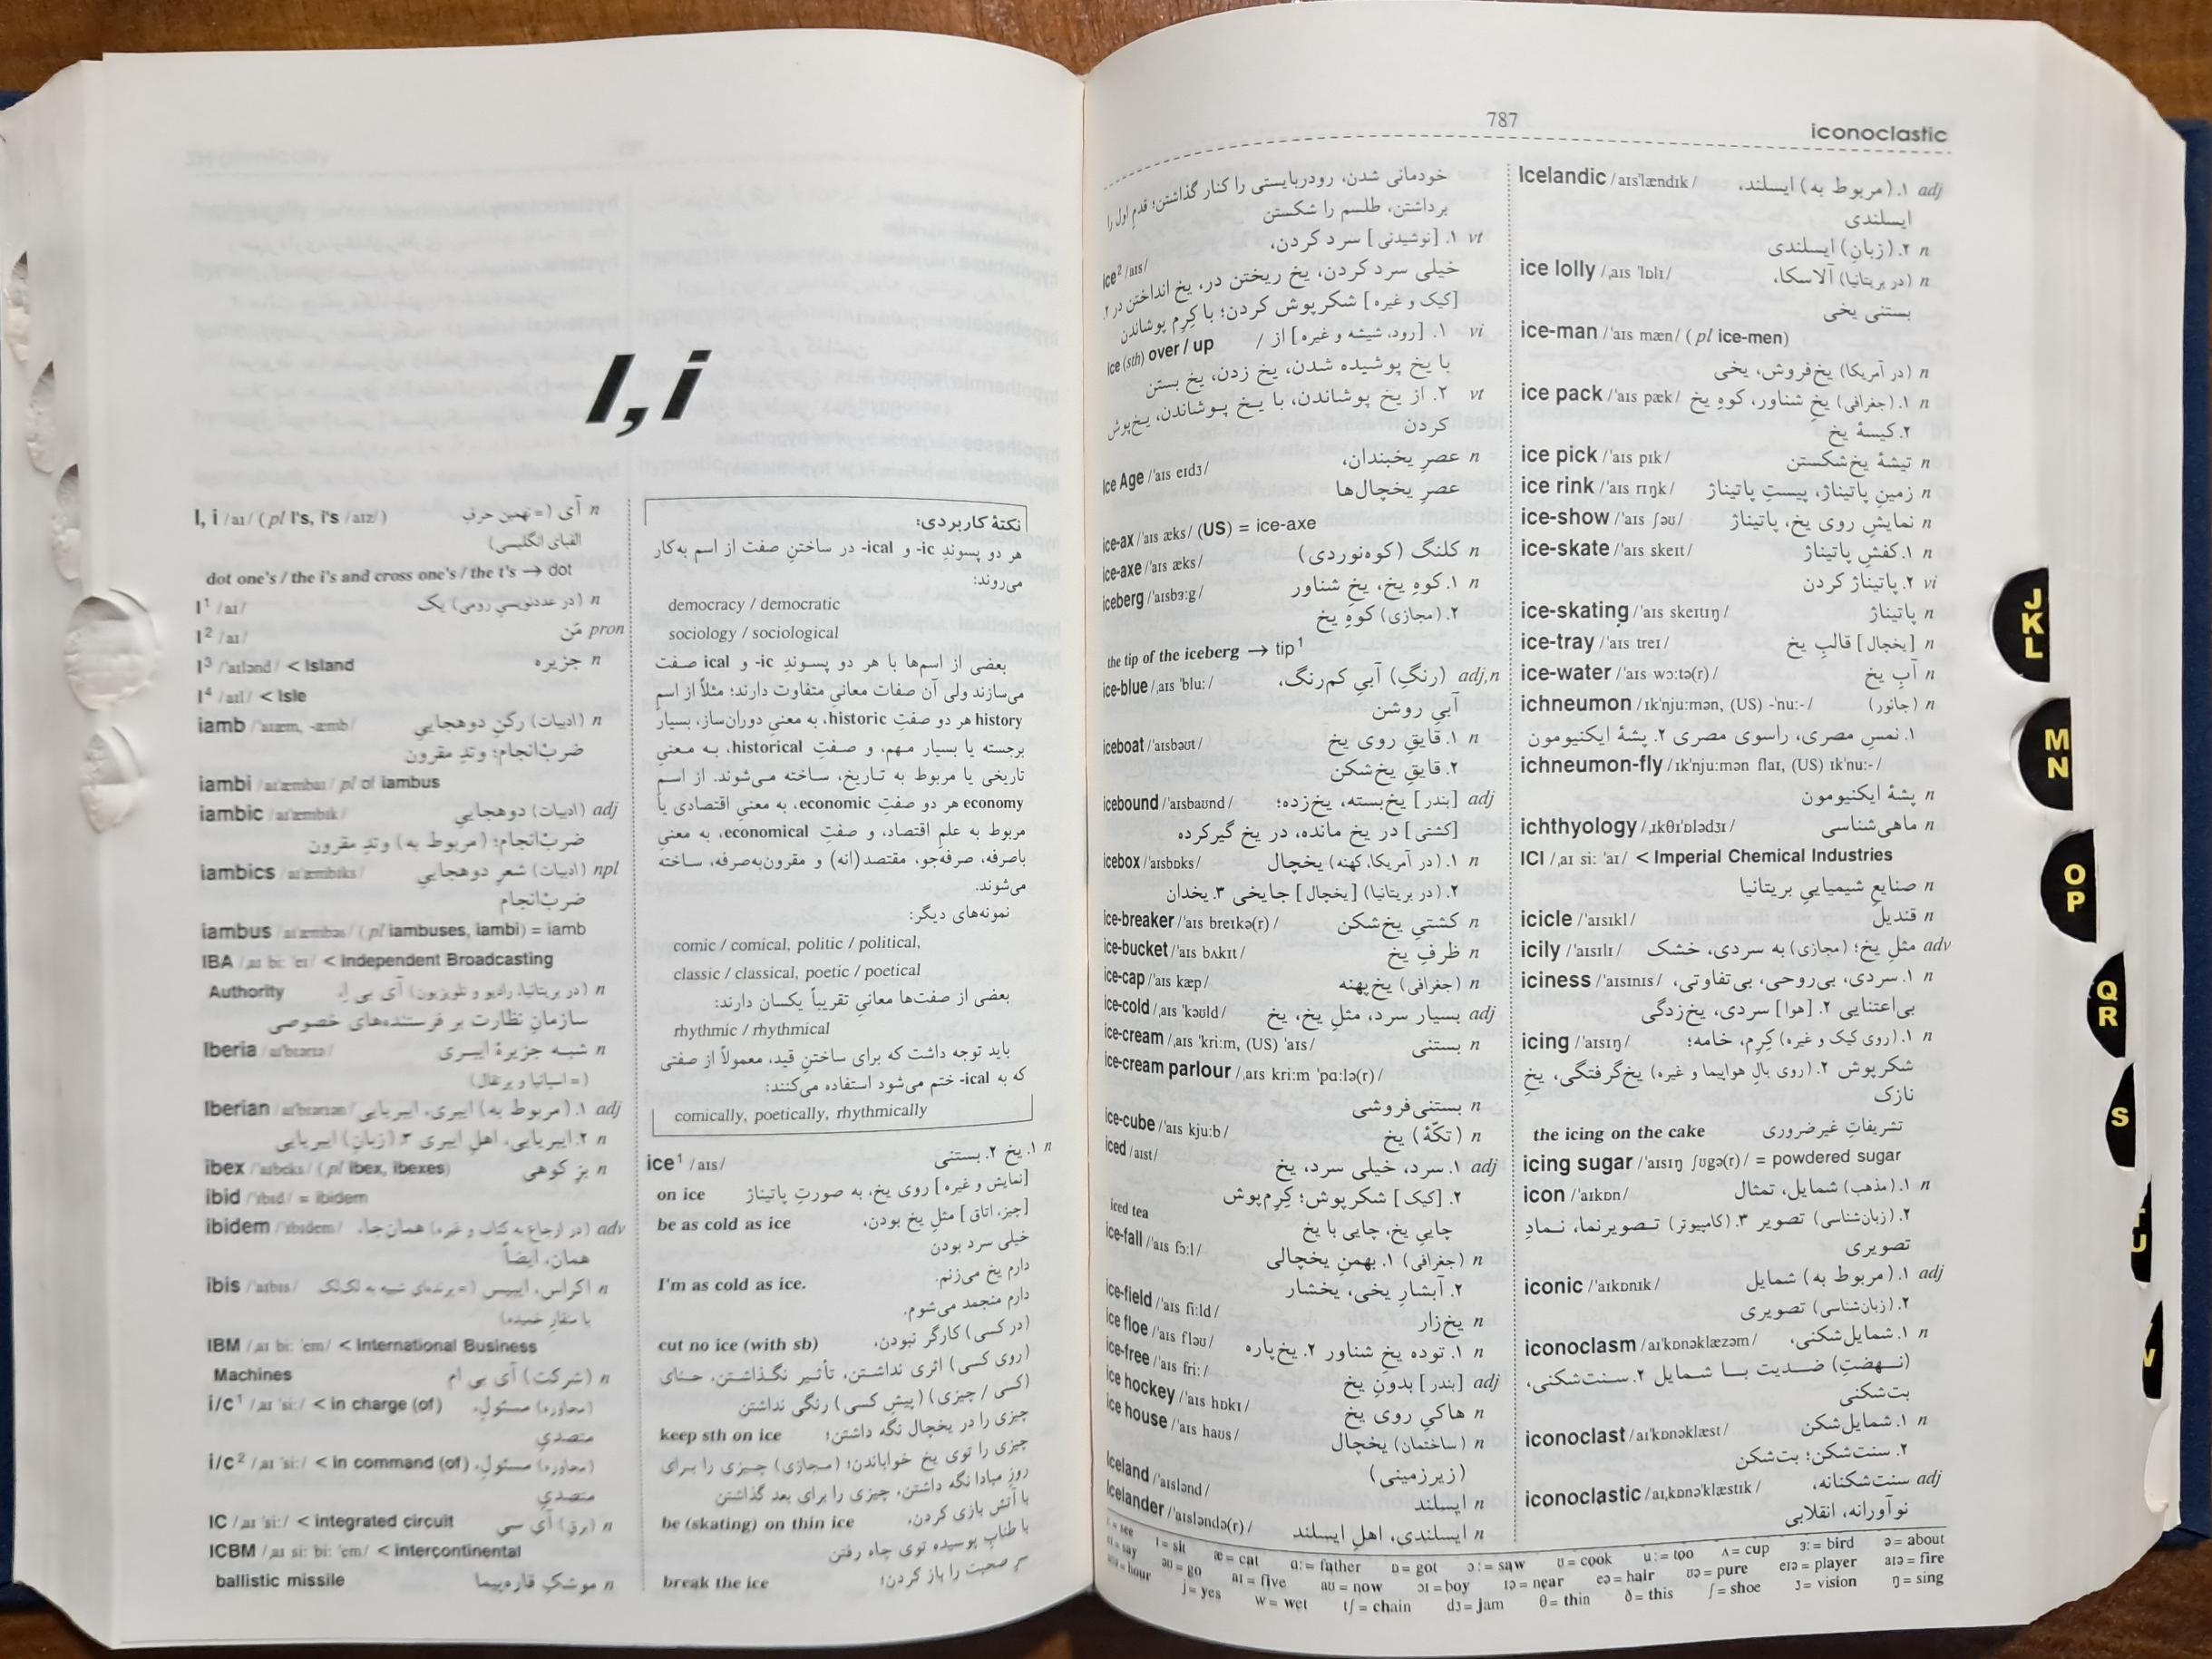 I, i
I, i /aɪ/ ( pl I's, i's /aɪz/) n آی (= نهمین حرفِ
الفبای انگلیسی)
dot one's / the i's and cross one's / the t's → dot
I¹ /aɪ/ n (در عددنویسیِ رومی) یک
I² /aɪ/ pron مَن
I³ /ˈaɪlənd/ < Island n جزیره
I⁴ /aɪl/ < Isle
iamb /ˈaɪæm, -æmb/ n (ادبیات) رکنِ دوهجاییِ
ضرب‌انجام؛ وتدِ مقرون
iambi /aɪˈæmbaɪ/ pl of iambus
iambic /aɪˈæmbɪk/ adj (ادبیات) دوهجاییِ
ضرب‌انجام؛ (مربوط به) وتدِ مقرون
iambics /aɪˈæmbɪks/ npl (ادبیات) شعرِ دوهجاییِ
ضرب‌انجام
iambus /aɪˈæmbəs/ ( pl iambuses, iambi) = iamb
IBA /ˌaɪ biː ˈeɪ/ < Independent Broadcasting
Authority n (در بریتانیا، رادیو و تلویزیون) آی بی اِ،
سازمانِ نظارت بر فرستنده‌های خصوصی
Iberia /aɪˈbɪərɪə/ n شبه جزیرهٔ ایبری
(= اسپانیا و پرتقال)
Iberian /aɪˈbɪərɪən/ adj ۱. (مربوط به) ایبری، ایبریایی
n ۲. ایبریایی، اهلِ ایبری ۳. (زبانِ) ایبریایی
ibex /ˈaɪbeks/ ( pl ibex, ibexes) n بزِ کوهی
ibid /ˈɪbɪd/ = ibidem
ibidem /ˈɪbɪdem/ adv (در ارجاع به کتاب و غیره) همان‌جا،
همان، ایضاً
ibis /ˈaɪbɪs/ n اکراس، ایبیس (= پرنده‌ای شبیه به لک‌لک
با منقارِ خمیده)
IBM /ˌaɪ biː ˈem/ < International Business
Machines n (شرکت) آی بی ام
i/c¹ /ˌaɪ ˈsiː/ < in charge (of) (محاوره) مسئولِ،
متصدیِ
i/c² /ˌaɪ ˈsiː/ < in command (of) (محاوره) مسئولِ،
متصدیِ
IC /ˌaɪ ˈsiː/ < integrated circuit n (برق) آی سی
ICBM /ˌaɪ siː biː ˈem/ < intercontinental
ballistic missile n موشکِ قاره‌پیما
نکتهٔ کاربردی:
هر دو پسوندِ -ic و -ical در ساختنِ صفت از اسم به‌کار
می‌روند:
democracy / democratic
sociology / sociological
بعضی از اسم‌ها با هر دو پسوندِ -ic و ical صفت
می‌سازند ولی آن صفات معانیِ متفاوت دارند؛ مثلاً از اسمِ
history هر دو صفتِ historic، به معنیِ دوران‌ساز، بسیار
برجسته یا بسیار مهم، و صفتِ historical، به معنیِ
تاریخی یا مربوط به تاریخ، ساخته می‌شوند. از اسم
economy هر دو صفتِ economic، به معنیِ اقتصادی یا
مربوط به علمِ اقتصاد، و صفتِ economical، به معنیِ
باصرفه، صرفه‌جو، مقتصد(انه) و مقرون‌به‌صرفه، ساخته
می‌شوند.
نمونه‌های دیگر:
comic / comical, politic / political,
classic / classical, poetic / poetical
بعضی از صفت‌ها معانیِ تقریباً یکسان دارند:
rhythmic / rhythmical
باید توجه داشت که برای ساختنِ قید، معمولاً از صفتی
که به ical- ختم می‌شود استفاده می‌کنند:
comically, poetically, rhythmically
ice¹ /aɪs/ n ۱. یخ ۲. بستنی
on ice [نمایش و غیره] روی یخ، به صورتِ پاتیناژ
be as cold as ice [چیز، اتاق] مثلِ یخ بودن،
خیلی سرد بودن
I'm as cold as ice. دارم یخ می‌زنم.
دارم منجمد می‌شوم.
cut no ice (with sb) (در کسی) کارگر نبودن،
(روی کسی) اثری نداشتن، تأثیر نگذاشتن، حنای
(کسی / چیزی) (پیشِ کسی) رنگی نداشتن
keep sth on ice چیزی را در یخچال نگه داشتن؛
چیزی را توی یخ خواباندن؛ (مجازی) چیزی را برای
روزِ مبادا نگه داشتن، چیزی را برای بعد گذاشتن
be (skating) on thin ice با آتش بازی کردن،
با طنابِ پوسیده توی چاه رفتن
break the ice سرِ صحبت را باز کردن؛
787
iconoclastic
خودمانی شدن، رودربایستی را کنار گذاشتن؛ قدمِ اول را
برداشتن، طلسم را شکستن
ice² /aɪs/ vt ۱. [نوشیدنی] سرد کردن،
خیلی سرد کردن، یخ ریختن در، یخ انداختن در ۲.
[کیک و غیره] شکرپوش کردن؛ با کِرِم پوشاندن
ice (sth) over / up vi ۱. [رود، شیشه و غیره] از /
با یخ پوشیده شدن، یخ زدن، یخ بستن
vt ۲. از یخ پوشاندن، با یخ پوشاندن، یخ‌پوش
کردن
Ice Age /ˈaɪs eɪdʒ/ n عصرِ یخبندان،
عصرِ یخچال‌ها
ice-ax /ˈaɪs æks/ (US) = ice-axe
ice-axe /ˈaɪs æks/ n کلنگ (کوه‌نوردی)
iceberg /ˈaɪsbɜːg/ n ۱. کوهِ یخ، یخِ شناور
۲. (مجازی) کوهِ یخ
the tip of the iceberg → tip¹
ice-blue /ˌaɪs ˈbluː/ adj,n (رنگِ) آبیِ کم‌رنگ،
آبیِ روشن
iceboat /ˈaɪsbəʊt/ n ۱. قایقِ روی یخ
۲. قایقِ یخ‌شکن
icebound /ˈaɪsbaʊnd/ adj [بندر] یخ‌بسته، یخ‌زده؛
[کشتی] در یخ مانده، در یخ گیرکرده
icebox /ˈaɪsbɒks/ n ۱. (در آمریکا، کهنه) یخچال
۲. (در بریتانیا) [یخچال] جایخی ۳. یخدان
ice-breaker /ˈaɪs breɪkə(r)/ n کشتیِ یخ‌شکن
ice-bucket /ˈaɪs bʌkɪt/ n ظرفِ یخ
ice-cap /ˈaɪs kæp/ n (جغرافی) یخ‌پهنه
ice-cold /ˌaɪs ˈkəʊld/ adj بسیار سرد، مثلِ یخ، یخ
ice-cream /ˌaɪs ˈkriːm, (US) ˈaɪs/ n بستنی
ice-cream parlour /ˌaɪs kriːm ˈpɑːlə(r)/
n بستنی‌فروشی
ice-cube /ˈaɪs kjuːb/ n (تکّهٔ) یخ
iced /aɪst/ adj ۱. سرد، خیلی سرد، یخ
۲. [کیک] شکرپوش؛ کِرِم‌پوش
iced tea چاییِ یخ، چایی با یخ
ice-fall /ˈaɪs fɔːl/ n (جغرافی) ۱. بهمنِ یخچالی
۲. آبشارِ یخی، یخشار
ice-field /ˈaɪs fiːld/ n یخ‌زار
ice floe /ˈaɪs fləʊ/ n ۱. توده یخِ شناور ۲. یخ‌پاره
ice-free /ˈaɪs friː/ adj [بندر] بدونِ یخ
ice hockey /ˈaɪs hɒkɪ/ n هاکیِ روی یخ
ice house /ˈaɪs haʊs/ n (ساختمان) یخچال
(زیرزمینی)
Iceland /ˈaɪslənd/ n ایسلند
Icelander /ˈaɪsləndə(r)/ n ایسلندی، اهلِ ایسلند
Icelandic /aɪsˈlændɪk/ adj ۱. (مربوط به) ایسلند،
ایسلندی
n ۲. (زبانِ) ایسلندی
ice lolly /ˌaɪs ˈlɒlɪ/ n (در بریتانیا) آلاسکا،
بستنی یخی
ice-man /ˈaɪs mæn/ ( pl ice-men)
n (در آمریکا) یخ‌فروش، یخی
ice pack /ˈaɪs pæk/ n ۱. (جغرافی) یخِ شناور، کوهِ یخ
۲. کیسهٔ یخ
ice pick /ˈaɪs pɪk/ n تیشهٔ یخ‌شکستن
ice rink /ˈaɪs rɪŋk/ n زمینِ پاتیناژ، پیستِ پاتیناژ
ice-show /ˈaɪs ʃəʊ/ n نمایشِ روی یخ، پاتیناژ
ice-skate /ˈaɪs skeɪt/ n ۱. کفشِ پاتیناژ
vi ۲. پاتیناژ کردن
ice-skating /ˈaɪs skeɪtɪŋ/ n پاتیناژ
ice-tray /ˈaɪs treɪ/ n [یخچال] قالبِ یخ
ice-water /ˈaɪs wɔːtə(r)/ n آبِ یخ
ichneumon /ɪkˈnjuːmən, (US) -ˈnuː-/ n (جانور)
۱. نمسِ مصری، راسوی مصری ۲. پشهٔ ایکنیومون
ichneumon-fly /ɪkˈnjuːmən flaɪ, (US) ɪkˈnuː-/
n پشهٔ ایکنیومون
ichthyology /ˌɪkθɪˈɒlədʒɪ/ n ماهی‌شناسی
ICI /ˌaɪ siː ˈaɪ/ < Imperial Chemical Industries
n صنایعِ شیمیاییِ بریتانیا
icicle /ˈaɪsɪkl/ n قندیل
icily /ˈaɪsɪlɪ/ adv مثلِ یخ؛ (مجازی) به سردی، خشک
iciness /ˈaɪsɪnɪs/ n ۱. سردی، بی‌روحی، بی‌تفاوتی،
بی‌اعتنایی ۲. [هوا] سردی، یخ‌زدگی
icing /ˈaɪsɪŋ/ n ۱. (روی کیک و غیره) کِرِم، خامه؛
شکرپوش ۲. (روی بالِ هواپیما و غیره) یخ‌گرفتگی، یخِ
نازک
the icing on the cake تشریفاتِ غیرضروری
icing sugar /ˈaɪsɪŋ ʃʊgə(r)/ = powdered sugar
icon /ˈaɪkɒn/ n ۱. (مذهب) شمایل، تمثال
۲. (زبان‌شناسی) تصویر ۳. (کامپیوتر) تصویرنما، نمادِ
تصویری
iconic /aɪˈkɒnɪk/ adj ۱. (مربوط به) شمایل
۲. (زبان‌شناسی) تصویری
iconoclasm /aɪˈkɒnəklæzəm/ n ۱. شمایل‌شکنی،
(نهضتِ) ضدیت با شمایل ۲. سنت‌شکنی،
بت‌شکنی
iconoclast /aɪˈkɒnəklæst/ n ۱. شمایل‌شکن
۲. سنت‌شکن؛ بت‌شکن
iconoclastic /aɪˌkɒnəˈklæstɪk/ adj سنت‌شکنانه،
نوآورانه، انقلابی
iː = see ɪ = sit æ = cat ɑː = father ɒ = got ɔː = saw ʊ = cook uː = too ʌ = cup ɜː = bird ə = about
eɪ = say əʊ = go aɪ = five aʊ = now ɔɪ = boy ɪə = near eə = hair ʊə = pure eɪə = player aɪə = fire
aʊə = hour j = yes w = wet tʃ = chain dʒ = jam θ = thin ð = this ʃ = shoe ʒ = vision ŋ = sing
J
K
L
M
N
O
P
Q
R
S
U